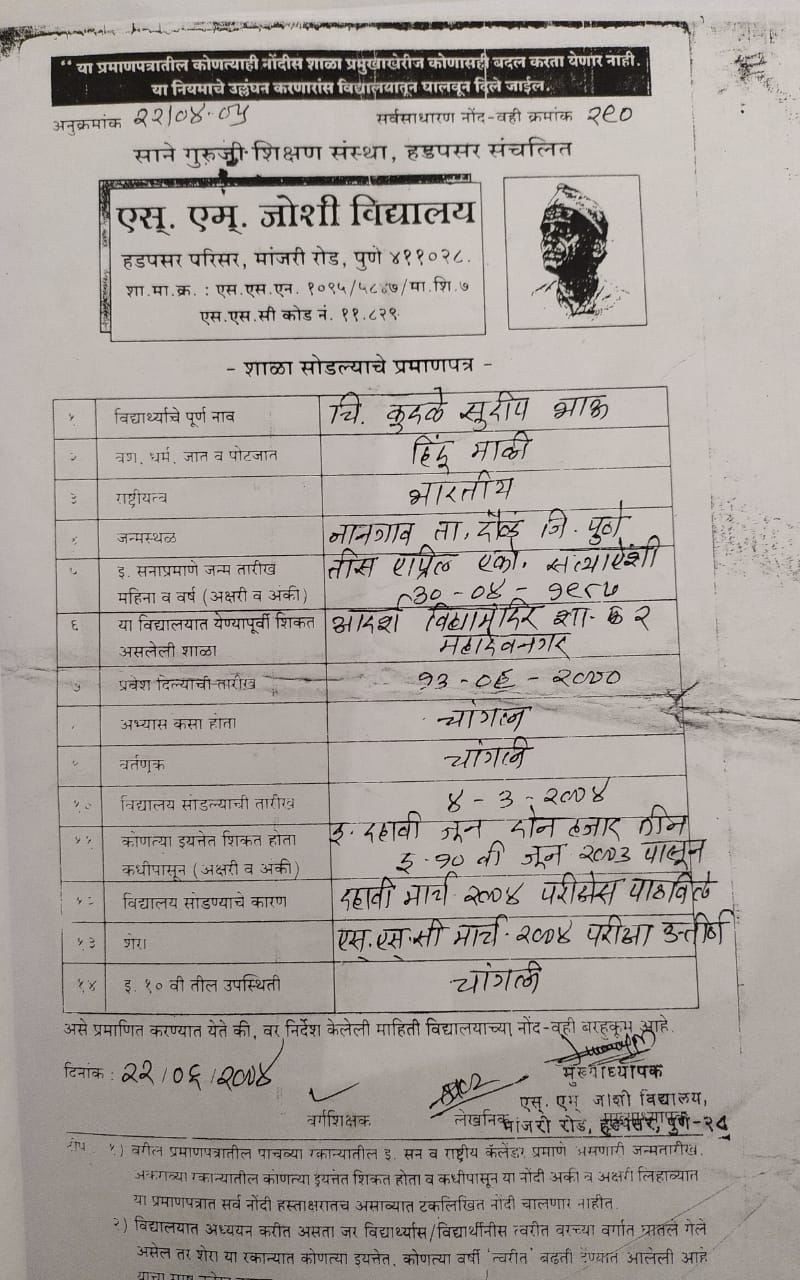 “ या प्रमाणपत्रातील कोणत्याही नोंदीस शाळा प्रमुखाखेरीज कोणासही बदल करता येणार नाही.
या नियमाचे उल्लंघन करणारांस विद्यालयातून घालवून दिले जाईल.
अनुक्रमांक २२/०४-०५ सर्वसाधारण नोंद-वही क्रमांक २९०
साने गुरुजी शिक्षण संस्था, हडपसर संचलित
एस्. एम्. जोशी विद्यालय
हडपसर परिसर, मांजरी रोड, पुणे ४११०२८.
शा.मा.क्र. : एस.एस.एन. १०९५/५८४७/मा.शि.७
एस.एस.सी कोड नं. ११.८२९
- शाळा सोडल्याचे प्रमाणपत्र -
१ विद्यार्थ्याचे पूर्ण नाव चि. कुदळे सुदीप भाऊ
२ वंश, धर्म, जात व पोटजात हिंदू माळी
३ राष्ट्रीयत्व भारतीय
४ जन्मस्थळ नानगाव ता. दौंड जि. पुणे
५ इ. सनाप्रमाणे जन्म तारीख तीस एप्रिल एको. सत्याऐंशी
महिना व वर्ष (अक्षरी व अंकी) ३०-०४-१९८७
६ या विद्यालयात येण्यापूर्वी शिकत आदर्श विद्यामंदिर शा. क्र २
असलेली शाळा महादेवनगर
७ प्रवेश दिल्याची तारीख १३-०६-२०००
८ अभ्यास कसा होता चांगला
९ वर्तणूक चांगली
१० विद्यालय सोडल्याची तारीख ४-३-२००४
११ कोणत्या इयत्तेत शिकत होता इ. दहावी जून दोन हजार तीन
कधीपासून (अक्षरी व अंकी) इ.१० वी जून २००३ पासून
१२ विद्यालय सोडण्याचे कारण दहावी मार्च २००४ परीक्षेस पाठविले
१३ शेरा एस.एस.सी मार्च-२००४ परीक्षा उत्तीर्ण
१४ इ. १० वी तील उपस्थिती चांगली
असे प्रमाणित करण्यात येते की, वर निर्देश केलेली माहिती विद्यालयाच्या नोंद-वही बरहुकूम आहे.
दिनांक : २२/०६/२००४ मुख्याध्यापक
एस्. एम् जोशी विद्यालय,
वर्गशिक्षक लेखनिक मांजरी रोड, हडपसर, पुणे-२८
टीप १) वरील प्रमाणपत्रातील पाचव्या रकान्यातील इ. सन व राष्ट्रीय कॅलेंडर प्रमाणे असणारी जन्मतारीख.
अकराव्या रकान्यातील कोणत्या इयत्तेत शिकत होता व कधीपासून या नोंदी अंकी व अक्षरी लिहाव्यात
या प्रमाणपत्रात सर्व नोंदी हस्ताक्षरातच असाव्यात टंकलिखित नोंदी चालणार नाहीत.
२) विद्यालयात अध्ययन करीत असता जर विद्यार्थ्यास/विद्यार्थीनीस त्वरीत वरच्या वर्गात घातले गेले
असेल तर शेरा या रकान्यात कोणत्या इयत्तेत, कोणत्या वर्षी 'त्वरीत' बढती देण्यात आलेली आहे